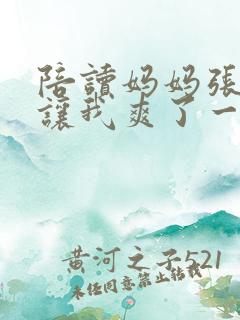 陪讀妈妈張
讓我爽了一
黄河之子521
未经同意禁止转载